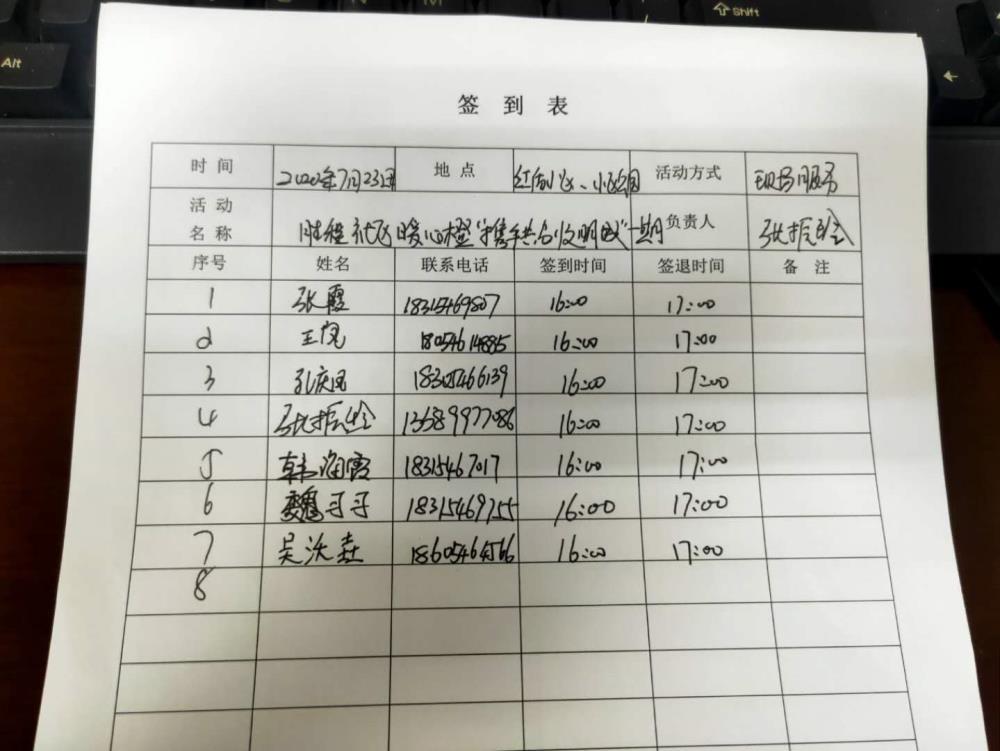 Alt
Shift
签到表
时间 2020年7月23日 地点 活动方式 现场服务
活动名称 胜程社区暖心橙"携手共 负责人 张振
序号 姓名 联系电话 签到时间 签退时间 备注
1 张霞 18315469807 16:00 17:00
2 王凤 18054614885 16:00 17:00
3 孔庆凤 18305466139 16:00 17:00
4 张振 13589977086 16:00 17:00
5 韩海霞 18315467017 16:00 17:00
6 魏可可 18315469755 16:00 17:00
7 吴沃森 18605464566 16:00 17:00
8